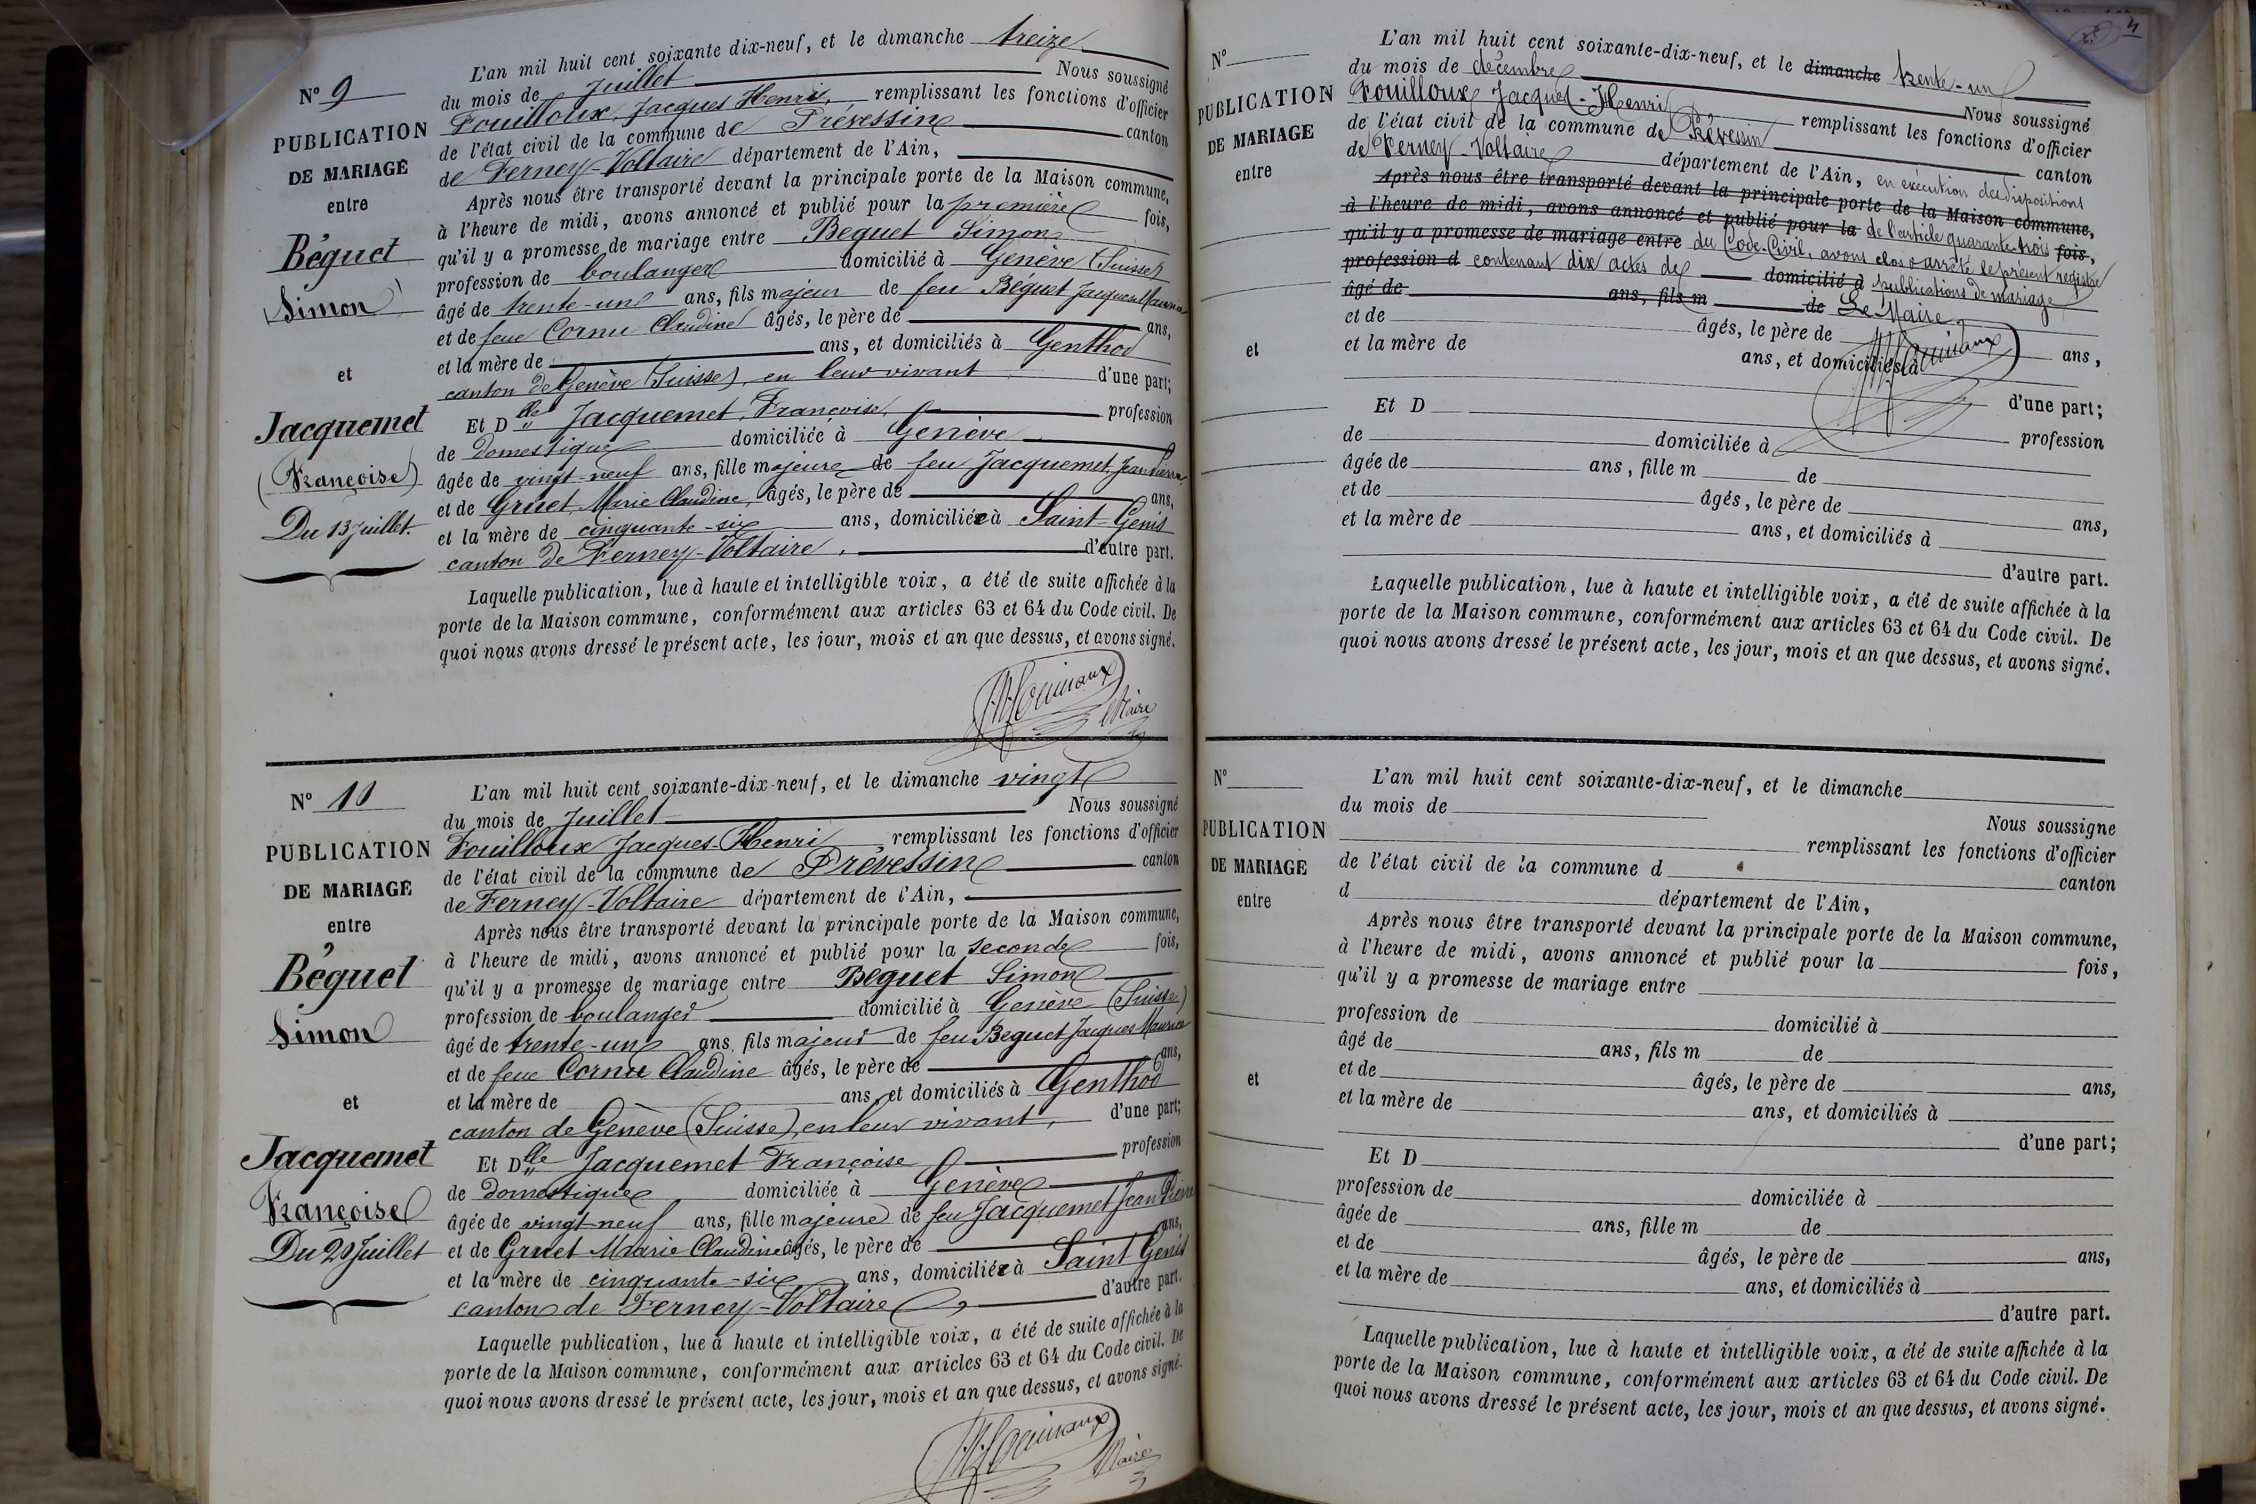 N° 9
PUBLICATION
DE MARIAGE
entre
Béguet
Simon
et
Jacquemet
(Françoise)
Du 13 Juillet.
L'an mil huit cent soixante dix-neuf, et le dimanche treize
du mois de Juillet Nous soussigné
Fouilloux, Jacques Henri, remplissant les fonctions d'officier
de l'état civil de la commune de Prévessin canton
de Ferney-Voltaire département de l'Ain,
Après nous être transporté devant la principale porte de la Maison commune,
à l'heure de midi, avons annoncé et publié pour la première fois,
qu'il y a promesse de mariage entre Beguet Simon
profession de boulanger domicilié à Genève (Suisse)
âgé de trente-un ans, fils majeur de feu Béguet Jacques Maurice
et de feue Cornu Claudine âgés, le père de ans,
et la mère de ans, et domiciliés à Genthod
canton de Genève (Suisse), en leur vivant d'une part;
Et Dlle Jacquemet, Françoise, profession
de domestique domiciliée à Genève
âgée de vingt-neuf ans, fille majeure de feu Jacquemet, Jean Pierre
et de Gruet, Marie Claudine, âgés, le père de ans,
et la mère de cinquante-six ans, domiciliée à Saint-Genis
canton de Ferney-Voltaire, d'autre part.
Laquelle publication, lue à haute et intelligible voix, a été de suite affichée à la
porte de la Maison commune, conformément aux articles 63 et 64 du Code civil. De
quoi nous avons dressé le présent acte, les jour, mois et an que dessus, et avons signé.
Maire
N° 10
PUBLICATION
DE MARIAGE
entre
Béguet
Simon
et
Jacquemet
Françoise
Du 20 Juillet
L'an mil huit cent soixante-dix-neuf, et le dimanche vingt
du mois de Juillet Nous soussigné
Fouilloux Jacques-Henri remplissant les fonctions d'officier
de l'état civil de la commune de Prévessin canton
de Ferney-Voltaire département de l'Ain,
Après nous être transporté devant la principale porte de la Maison commune,
à l'heure de midi, avons annoncé et publié pour la seconde fois,
qu'il y a promesse de mariage entre Béguet Simon
profession de boulanger domicilié à Genève (Suisse)
âgé de trente-un ans, fils majeur de feu Beguet Jacques Maurice
et de feue Cornu Claudine âgés, le père de ans,
et la mère de ans, et domiciliés à Genthod
canton de Genève (Suisse), en leur vivant, d'une part;
Et Dlle Jacquemet Françoise profession
de domestique domiciliée à Genève
âgée de vingt-neuf ans, fille majeure de feu Jacquemet Jean Pierre
et de Gruet Maarie Claudine âgés, le père de ans,
et la mère de cinquante-six ans, domiciliée à Saint Genis
canton de Ferney-Voltaire, d'autre part.
Laquelle publication, lue à haute et intelligible voix, a été de suite affichée à la
porte de la Maison commune, conformément aux articles 63 et 64 du Code civil. De
quoi nous avons dressé le présent acte, les jour, mois et an que dessus, et avons signé.
Maire
4
N°
PUBLICATION
DE MARIAGE
entre
et
L'an mil huit cent soixante-dix-neuf, et le dimanche trente-un
du mois de décembre Nous soussigné
Fouilloux Jacques-Henri remplissant les fonctions d'officier
de l'état civil de la commune de Prévessin canton
de Ferney-Voltaire département de l'Ain, en exécution des dispositions
Après nous être transporté devant la principale porte de la Maison commune,
à l'heure de midi, avons annoncé et publié pour la de l'article quarante-trois fois,
qu'il y a promesse de mariage entre du Code-Civil, avons clos & arrêté le présent registre
profession d contenant dix actes de domicilié à publications de mariage
âgé de ans, fils m de Le Maire
et de âgés, le père de ans,
et la mère de ans, et domiciliés à
d'une part;
Et D profession
de domiciliée à
âgée de ans, fille m de
et de âgés, le père de ans,
et la mère de ans, et domiciliés à
d'autre part.
Laquelle publication, lue à haute et intelligible voix, a été de suite affichée à la
porte de la Maison commune, conformément aux articles 63 et 64 du Code civil. De
quoi nous avons dressé le présent acte, les jour, mois et an que dessus, et avons signé.
N°
PUBLICATION
DE MARIAGE
entre
et
L'an mil huit cent soixante-dix-neuf, et le dimanche
du mois de Nous soussigne
remplissant les fonctions d'officier
de l'état civil de la commune d canton
d département de l'Ain,
Après nous être transporté devant la principale porte de la Maison commune,
à l'heure de midi, avons annoncé et publié pour la fois,
qu'il y a promesse de mariage entre
profession de domicilié à
âgé de ans, fils m de
et de âgés, le père de ans,
et la mère de ans, et domiciliés à
d'une part;
Et D
profession de domiciliée à
âgée de ans, fille m de
et de âgés, le père de ans,
et la mère de ans, et domiciliés à
d'autre part.
Laquelle publication, lue à haute et intelligible voix, a été de suite affichée à la
porte de la Maison commune, conformément aux articles 63 et 64 du Code civil. De
quoi nous avons dressé le présent acte, les jour, mois et an que dessus, et avons signé.